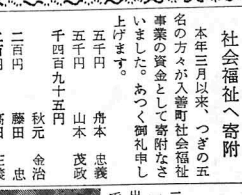 社会福祉へ寄附
本年三月以来、つぎの五
名の方々が入善町社会福祉
事業の資金として寄附なさ
いました。あつく御礼申し
上げます。
五千円　舟本　忠義
五千円　山本　茂政
千四百九十五円
秋元　金治
二百円　藤田　忠